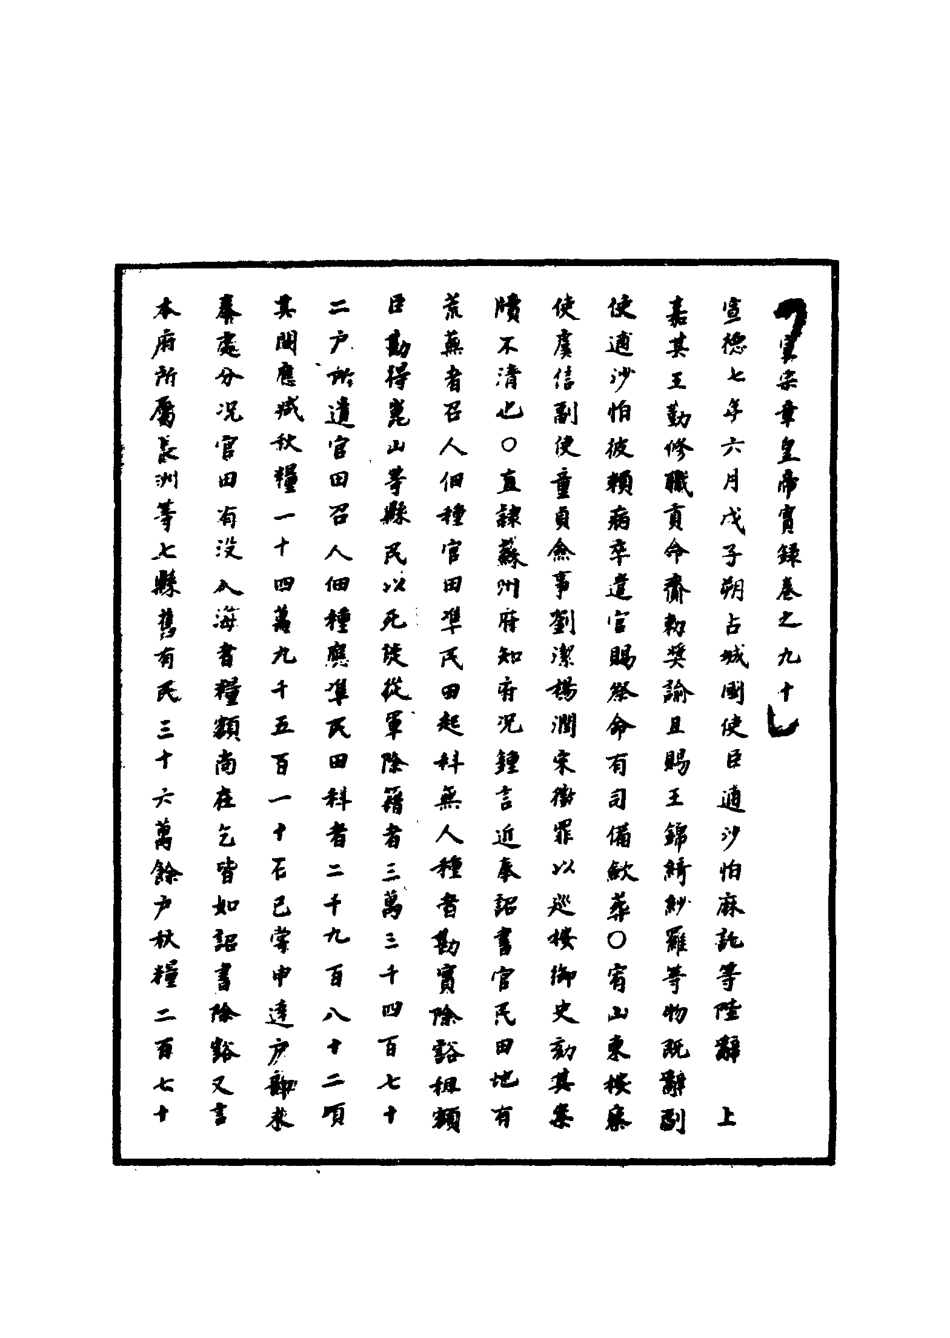 宣宗章皇帝實錄卷之九十
宣德七年六月戊子朔占城國使臣逋沙怕麻託等陸辭　上
嘉其王勤修職貢命齎勑奬諭且賜王錦綺紗羅等物既辭副
使逋沙怕彼賴病卒遣官賜祭命有司備歛葬○宥山東按察
使虞信副使童貞僉事劉潔楊潤宋衡罪以巡按御史劾其案
牘不清也○直隸蘇州府知府况鍾言近奉詔書官民田地有
荒蕪者召人佃種官田凖民田起科無人種者勘實除豁租額
臣勘得崑山等縣民以死徙從軍除籍者三萬三千四百七十
二户所遺官田召人佃種應凖民田科者二千九百八十二頃
其間應減秋糧一十四萬九千五百一十石已常申達户部未
奉處分况官田有沒入海者糧額尚在乞皆如詔書除豁又言
本府所屬長洲等七縣舊有民三十六萬餘户秋糧二百七十